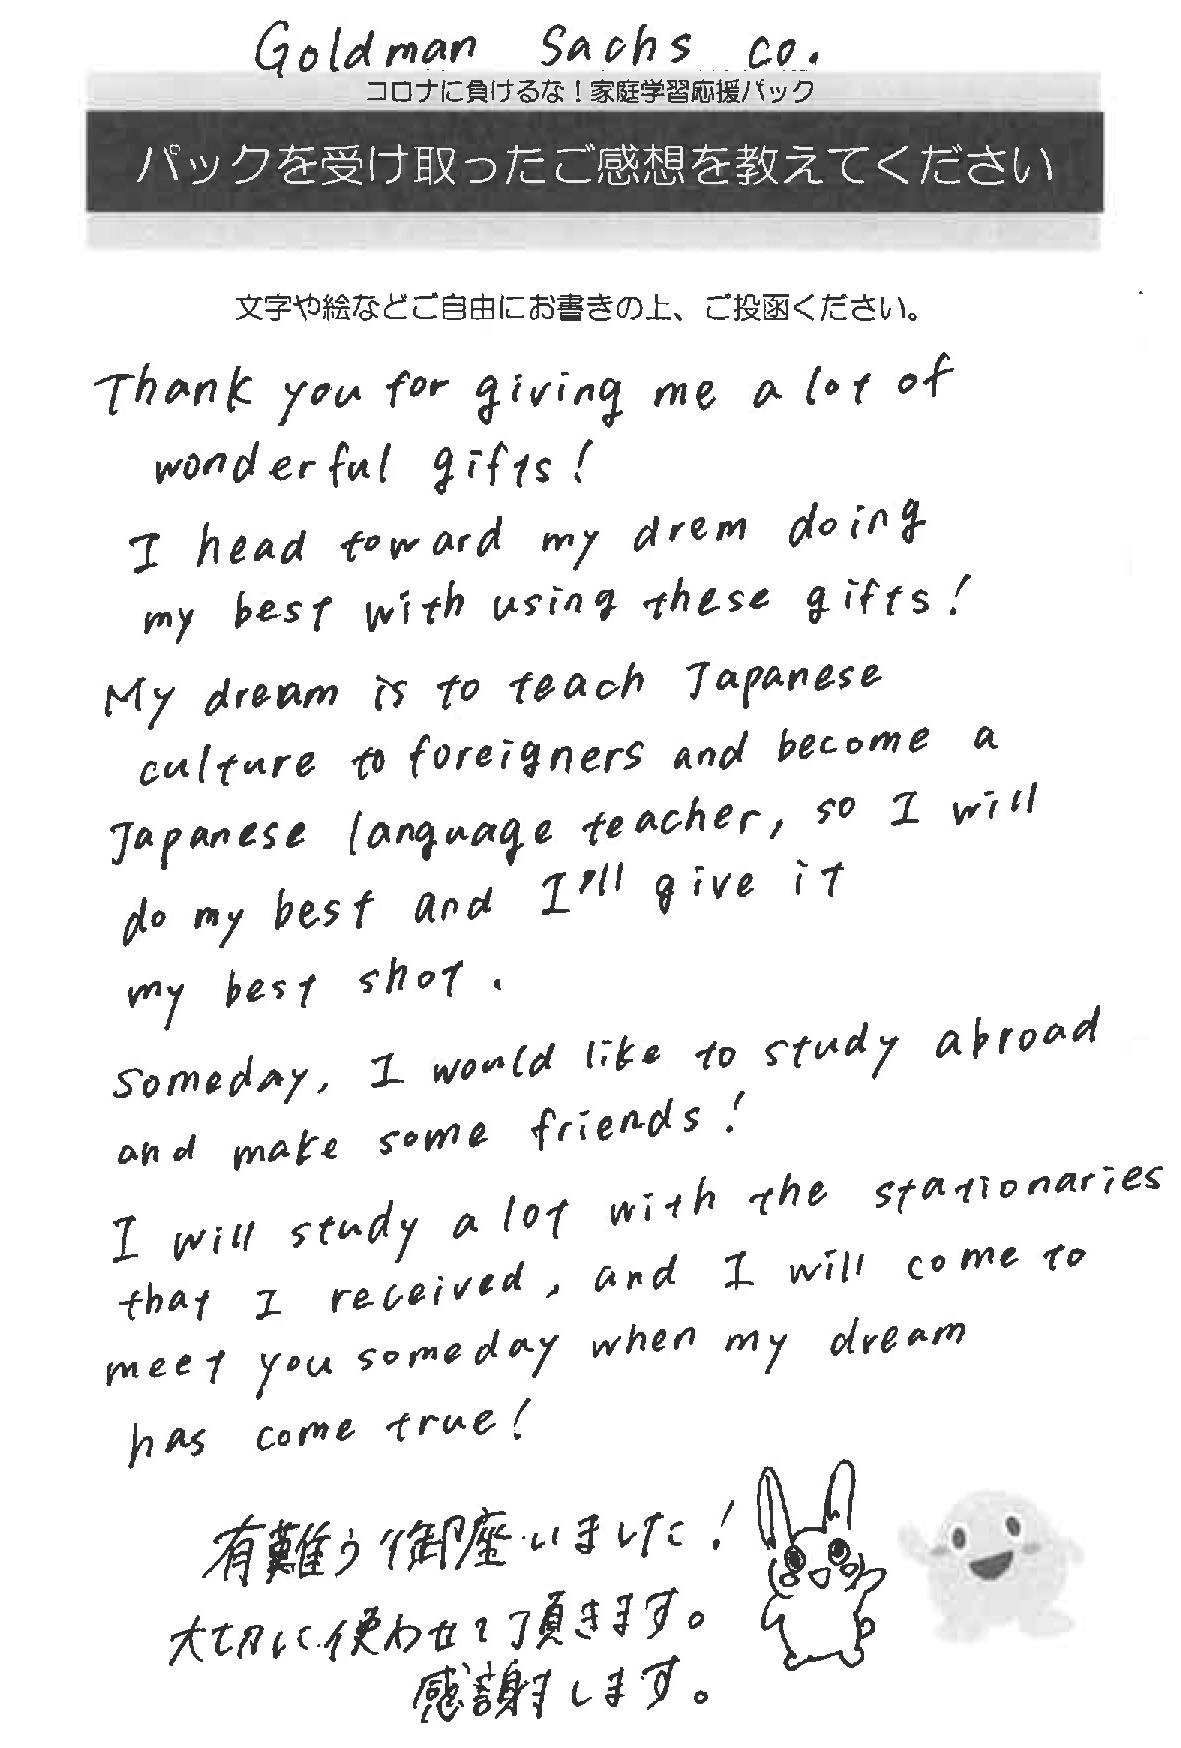 Goldman Sachs co.
コロナに負けるな！家庭学習応援パック
パックを受け取ったご感想を教えてください
文字や絵などご自由にお書きの上、ご投函ください。
Thank you for giving me a lot of
wonderful gifts!
I head toward my drem doing
my best with using these gifts!
My dream is to teach Japanese
culture to foreigners and become a
Japanese language teacher, so I will
do my best and I'll give it
my best shot.
Someday, I would like to study abroad
and make some friends!
I will study a lot with the stationaries
that I received, and I will come to
meet you someday when my dream
has come true!
有難う御座いました！
大切に使わせて頂きます。
感謝します。